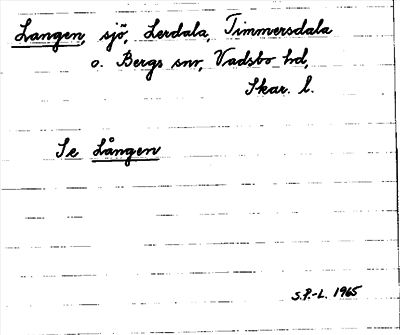 Langen, sjö, Lerdala, Timmersdala
o. Bergs snr, Vadsbo hd,
Skar. l.
Se Lången
S.P.-L. 1965